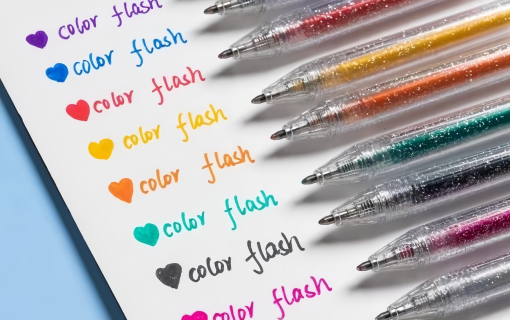 color flash
color flash
color flash
color flash
color flash
color flash
color flash
color flash